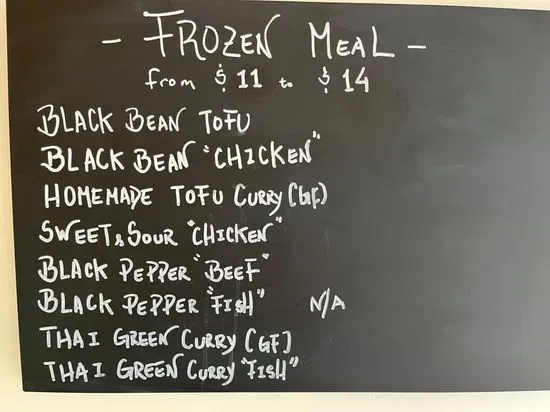 - FROZEN MEAL -
from $11 to $14
BLACK BEAN TOFU
BLACK BEAN "CHICKEN"
HOMEMADE TOFU CURRY (GF)
SWEET & SOUR "CHICKEN"
BLACK PEPPER "BEEF"
BLACK PEPPER "FISH" N/A
THAI GREEN CURRY (GF)
THAI GREEN CURRY "FISH"